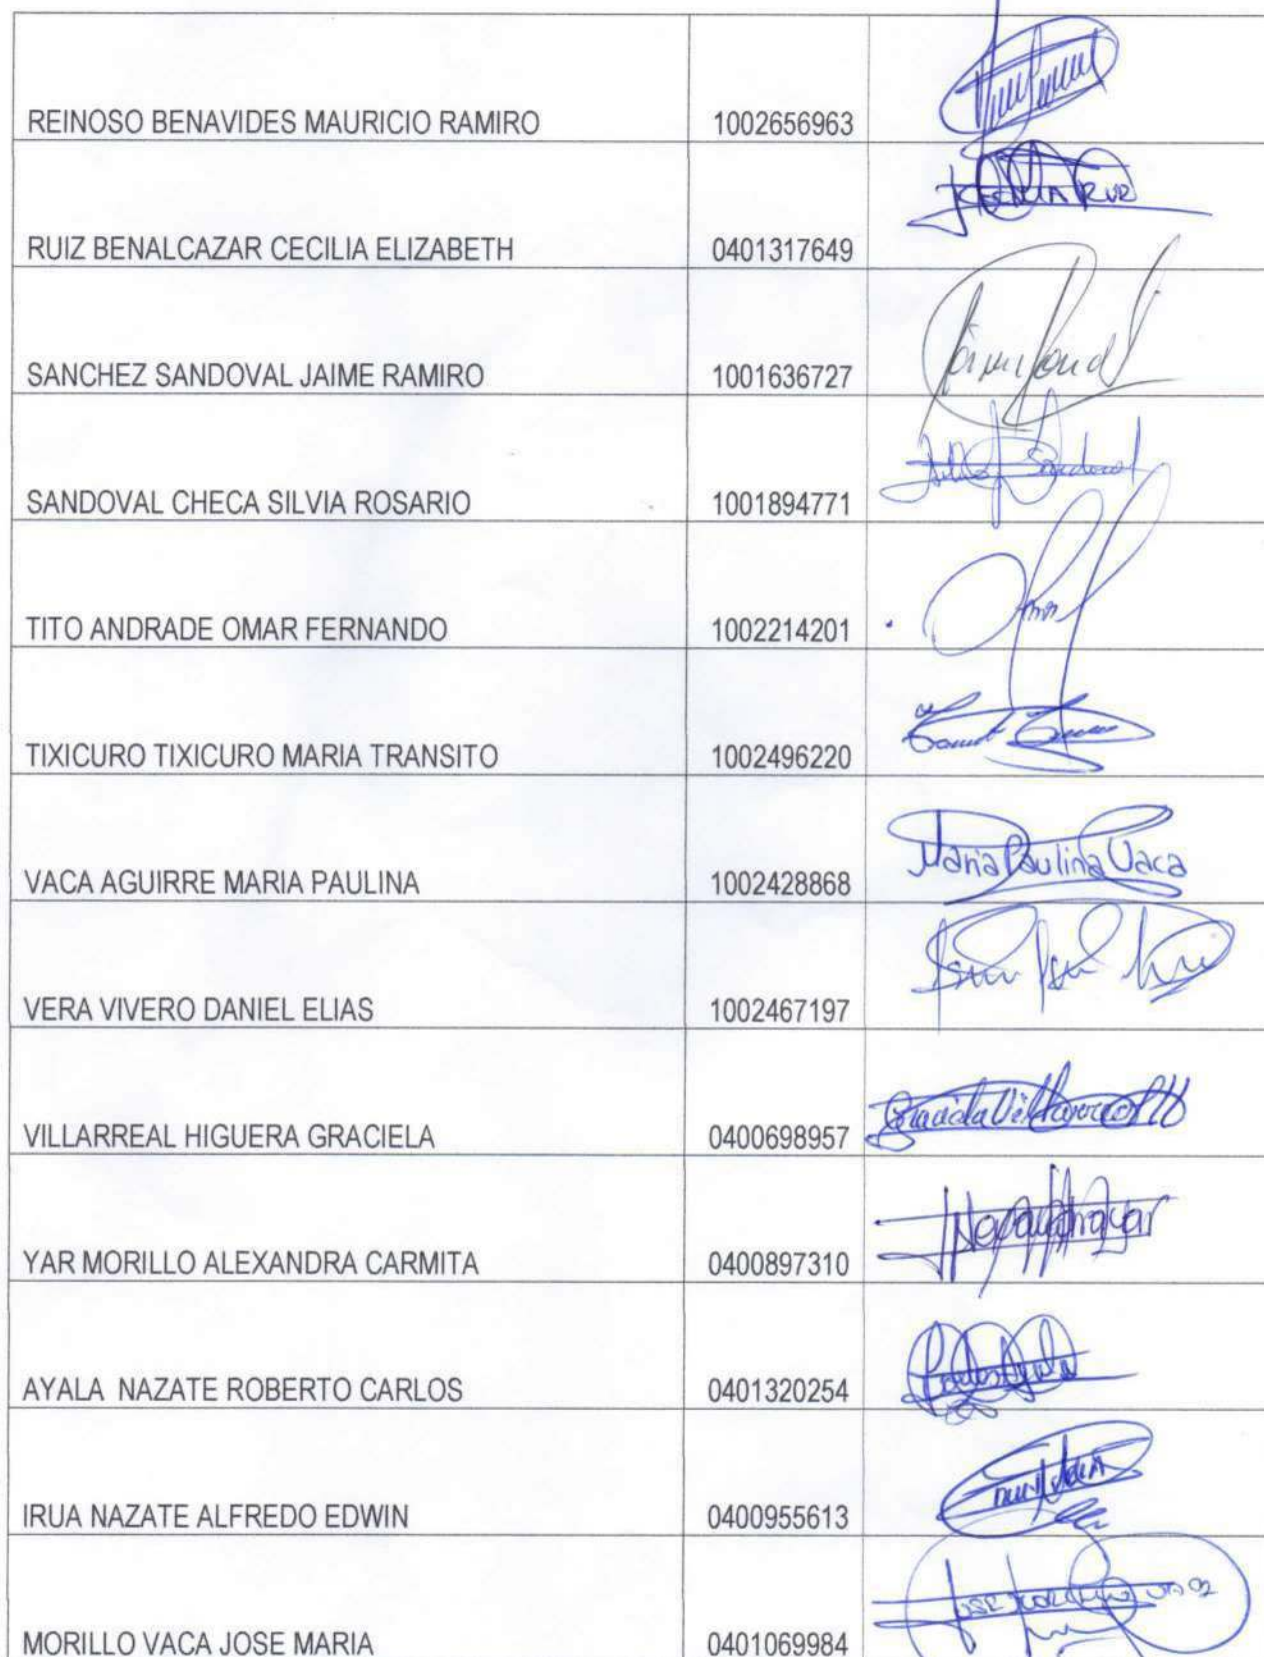 REINOSO BENAVIDES MAURICIO RAMIRO 1002656963
RUIZ BENALCAZAR CECILIA ELIZABETH 0401317649
SANCHEZ SANDOVAL JAIME RAMIRO 1001636727
SANDOVAL CHECA SILVIA ROSARIO 1001894771 Sandoval
TITO ANDRADE OMAR FERNANDO 1002214201
TIXICURO TIXICURO MARIA TRANSITO 1002496220
VACA AGUIRRE MARIA PAULINA 1002428868 Maria Paulina Vaca
VERA VIVERO DANIEL ELIAS 1002467197
VILLARREAL HIGUERA GRACIELA 0400698957 Graciela Villarreal H
YAR MORILLO ALEXANDRA CARMITA 0400897310
AYALA NAZATE ROBERTO CARLOS 0401320254
IRUA NAZATE ALFREDO EDWIN 0400955613
MORILLO VACA JOSE MARIA 0401069984